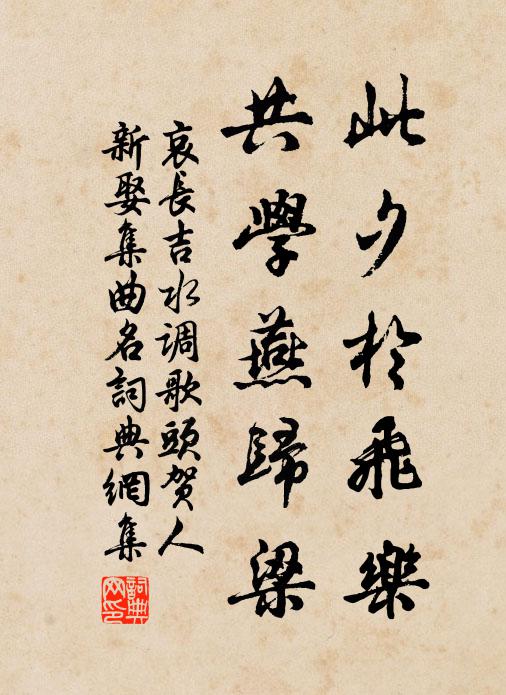 此夕於飛樂
共學燕歸梁
哀長吉水调歌頭賀人
新娶集曲名詞典網集
詞典網印